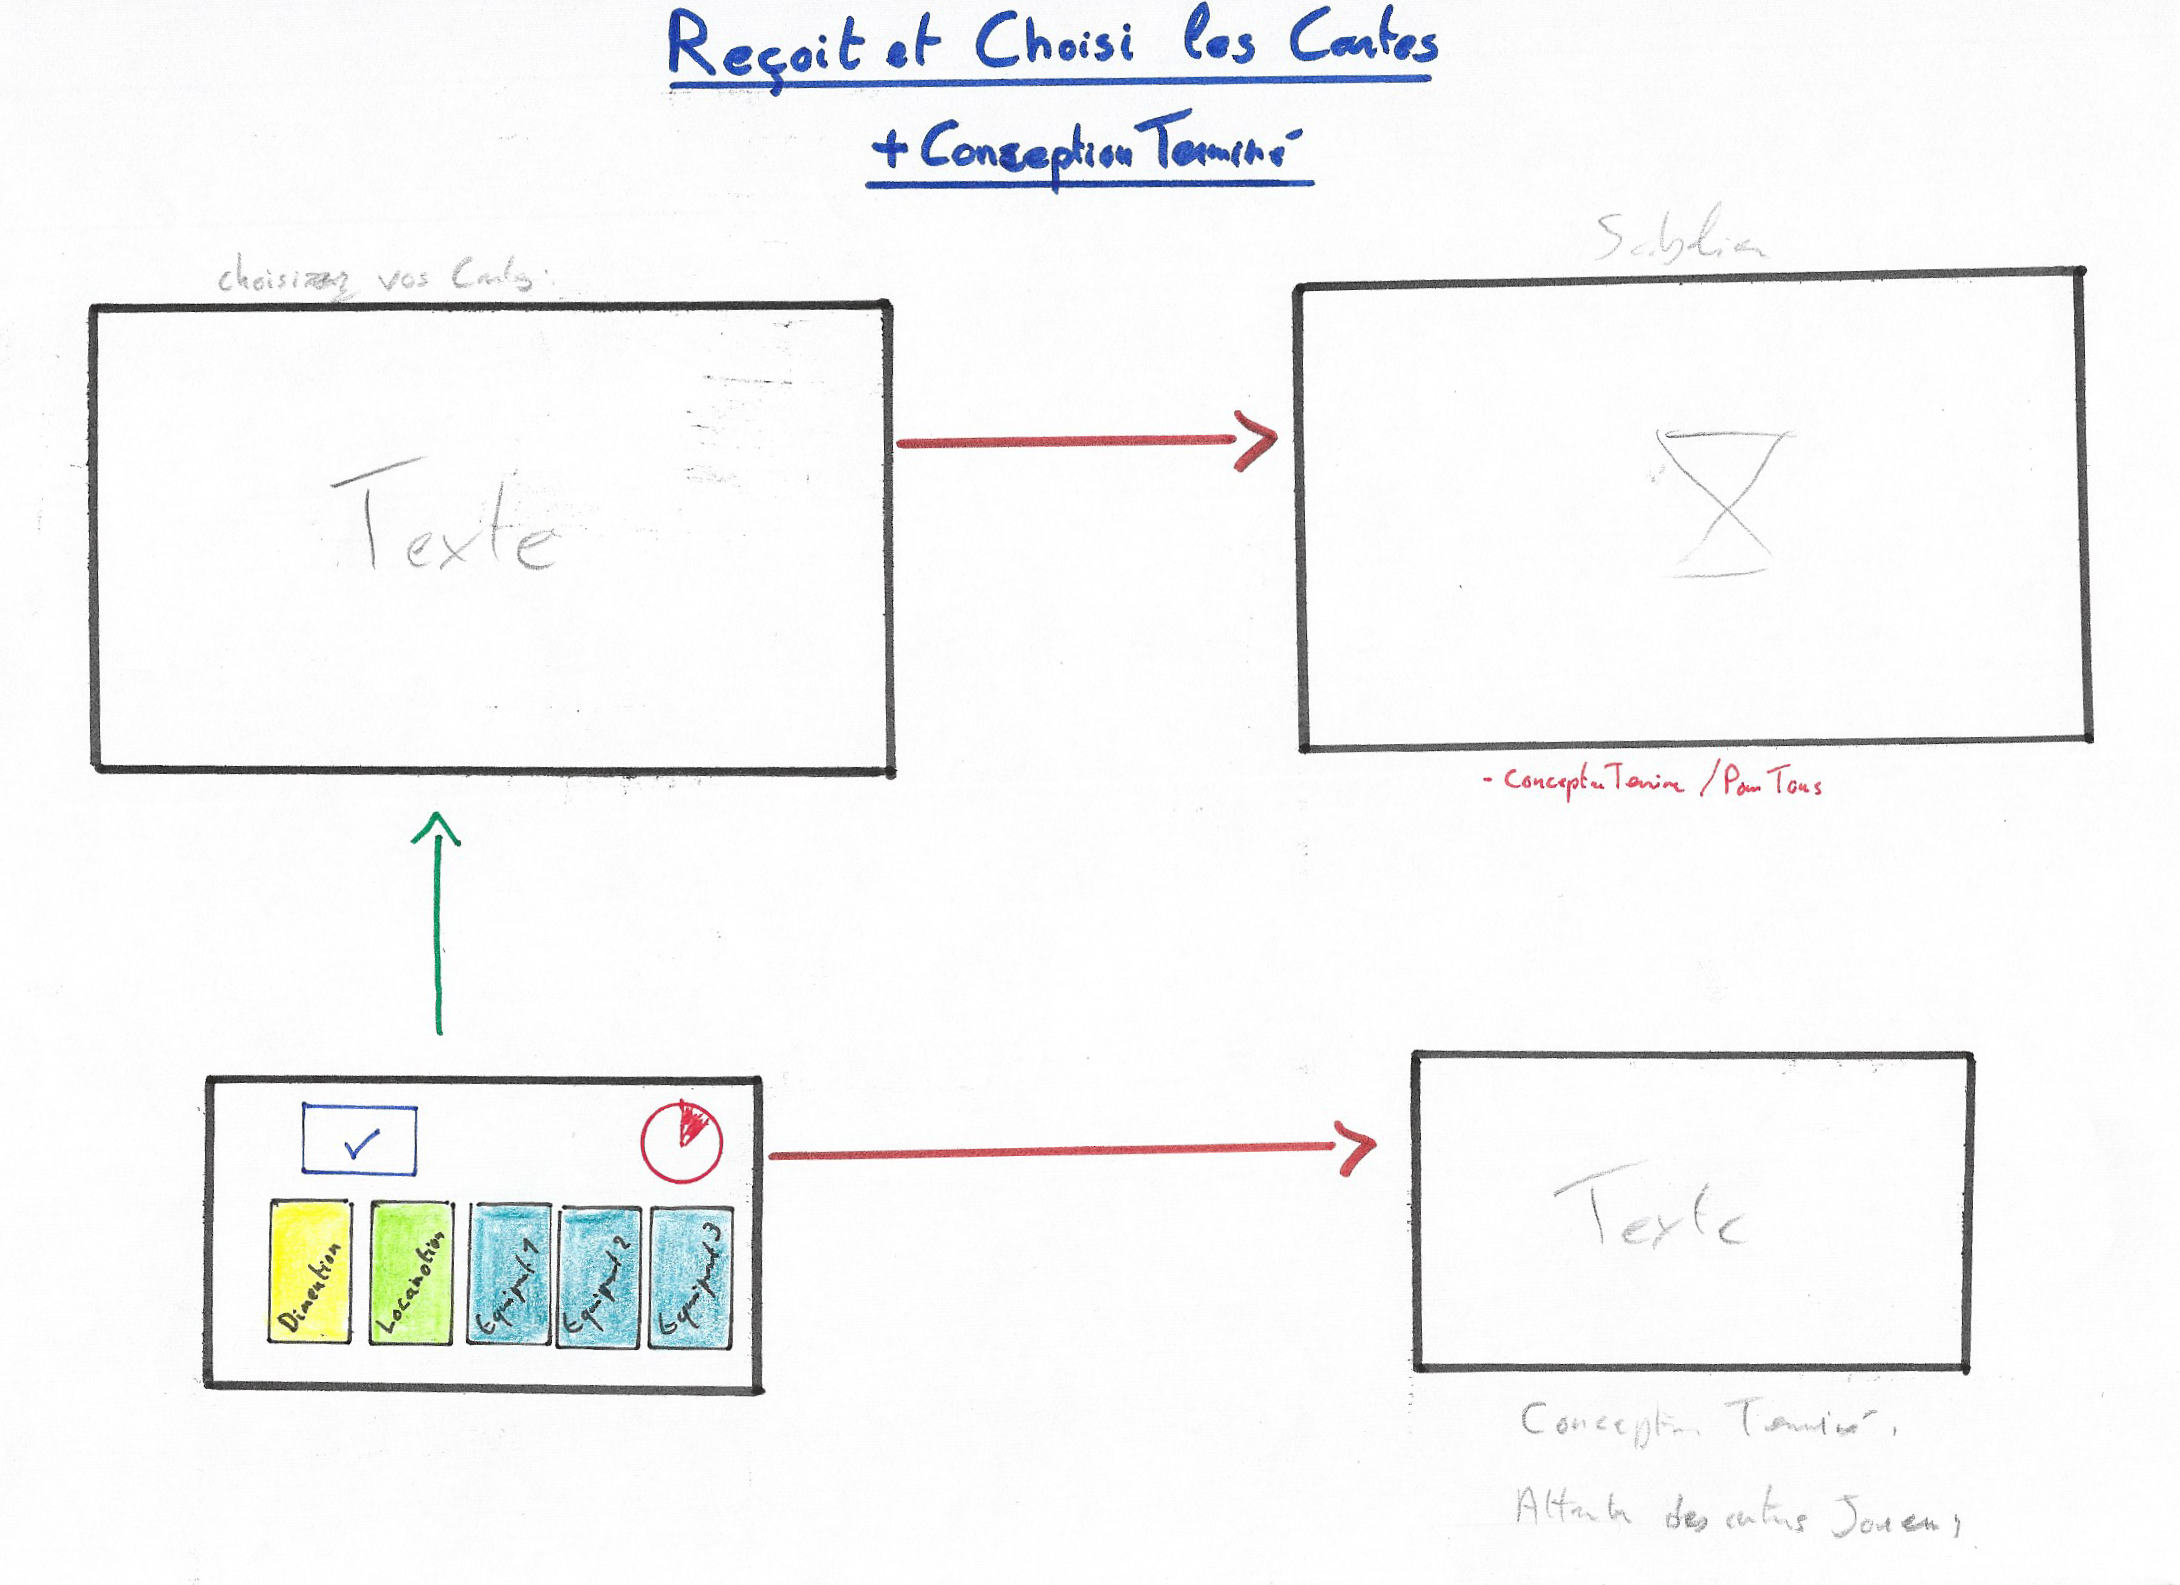 Reçoit et Choisi les Cartes
+ Conception Terminé
Sablier
choisissez vos Cartes.
Texte
- Conception Terminé / Pour Tous
Texte
Dimention
Locamotion
Equipmt 1
Equipmt 2
Equipmt 3
Conception Terminé.
Attente des autres Joueurs